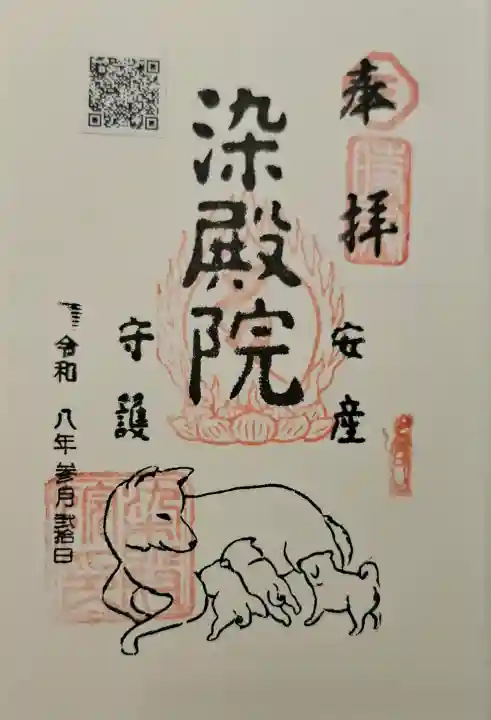 奉拝
安産
染殿院
守護
令和 八年 参月 弐拾日